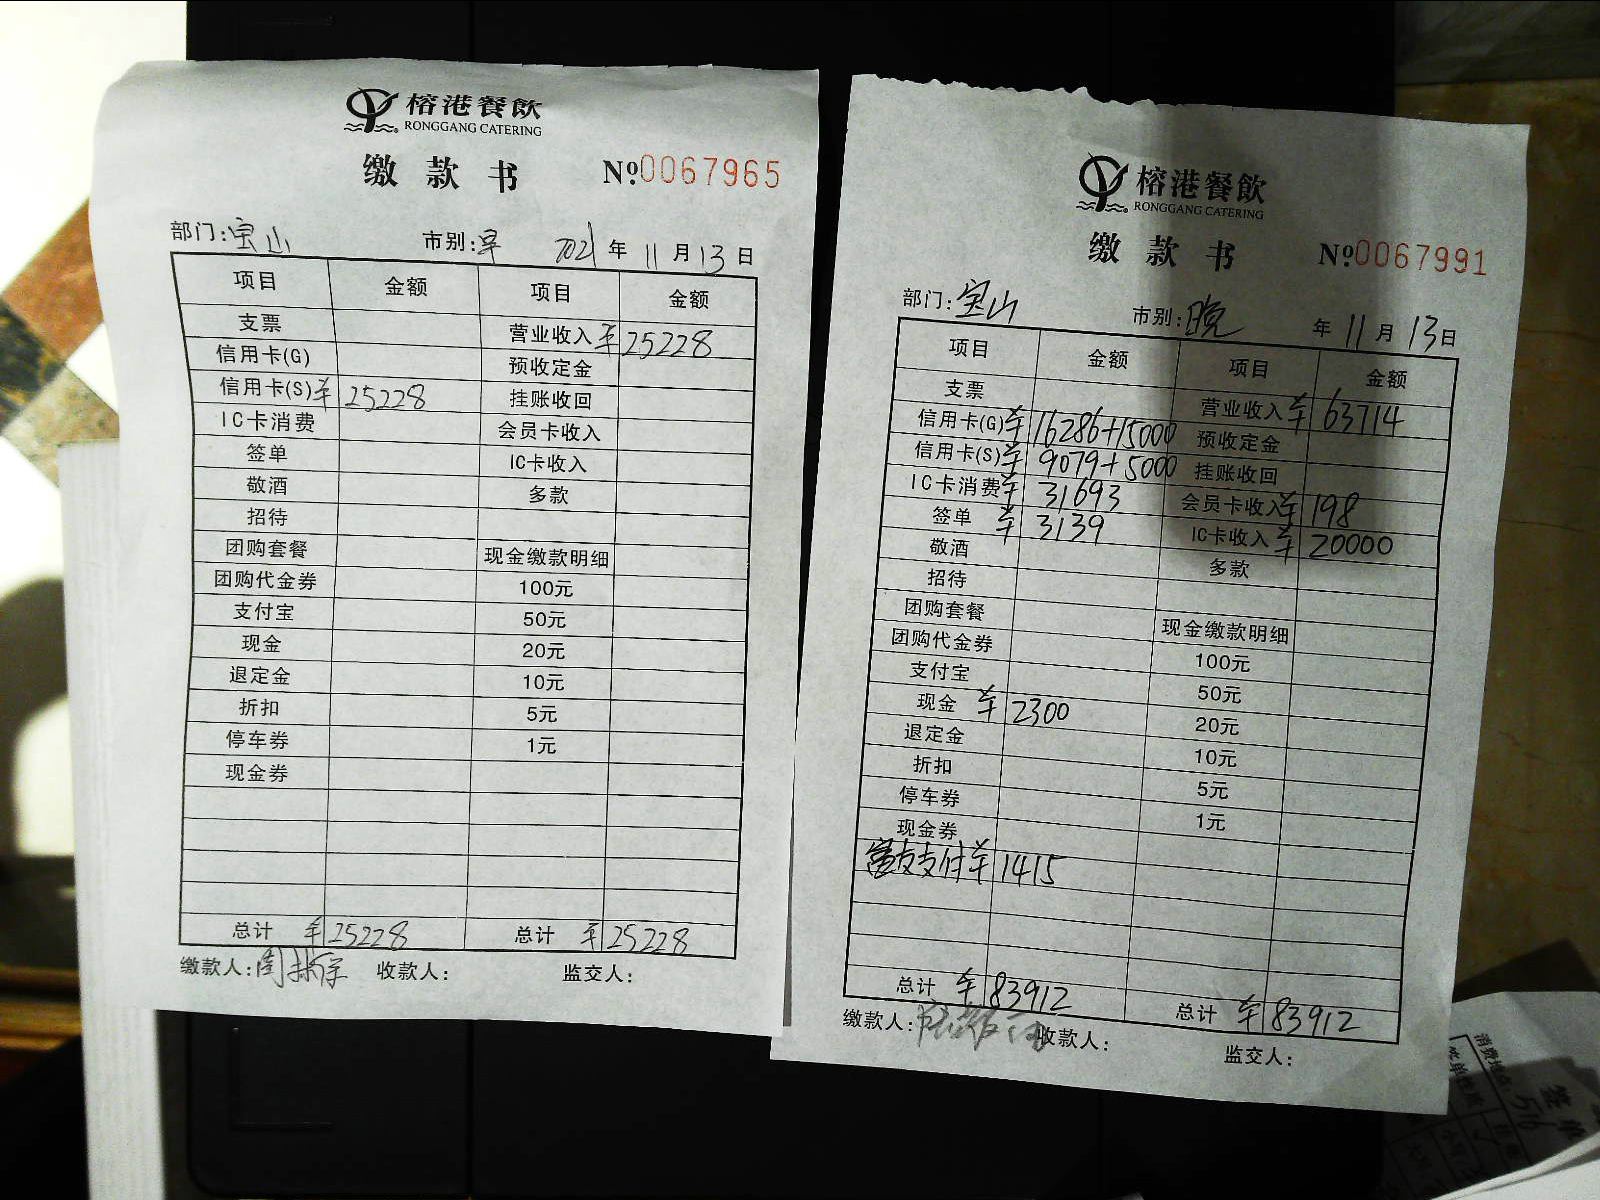 榕港餐飲
RONGGANG CATERING
缴款书 Nº.0067965
部门:宝山 市别:早 2021年11月13日
项目 金额 项目 金额
支票 营业收入 ¥25228
信用卡(G) 预收定金
信用卡(S) ¥25228 挂账收回
IC卡消费 会员卡收入
签单 IC卡收入
敬酒 多款
招待
团购套餐 现金缴款明细
团购代金券 100元
支付宝 50元
现金 20元
退定金 10元
折扣 5元
停车券 1元
现金券
总计 ¥25228 总计 ¥25228
缴款人:周 收款人: 监交人:
榕港餐飲
RONGGANG CATERING
缴款书 Nº.0067991
部门:宝山 市别:晚 年11月13日
项目 金额 项目 金额
支票 营业收入 ¥63714
信用卡(G) ¥16286+15000 预收定金
信用卡(S) ¥9079+5000 挂账收回
IC卡消费 ¥31693 会员卡收入 ¥198
签单 ¥3139 IC卡收入 ¥20000
敬酒 多款
招待
团购套餐 现金缴款明细
团购代金券 100元
支付宝 50元
现金 ¥2300 20元
退定金 10元
折扣 5元
停车券 1元
现金券
支付 ¥1415
总计 ¥83912 总计 ¥83912
缴款人: 收款人: 监交人:
签单
消费地点: 516